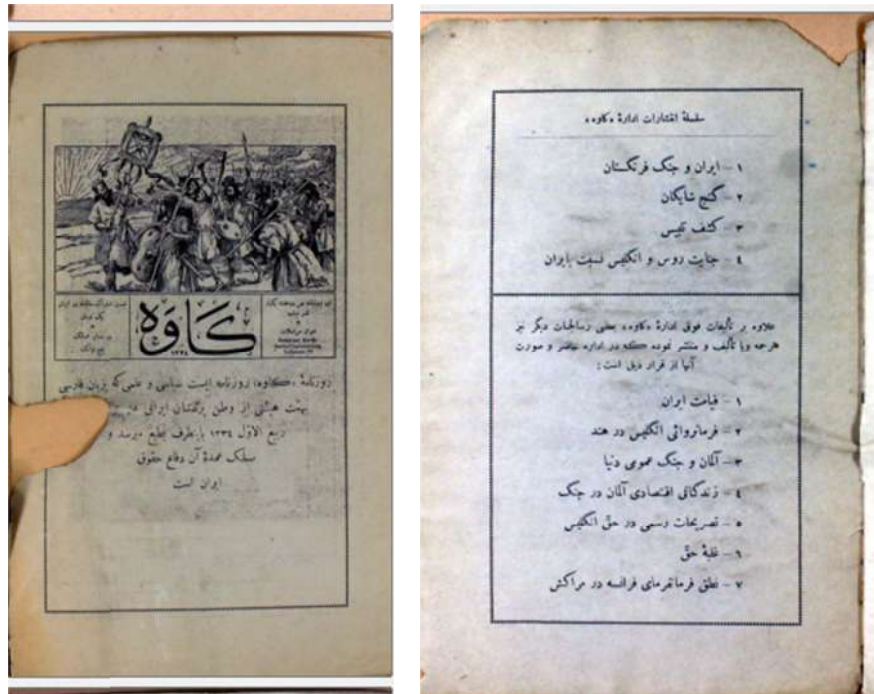 کاوه
۱۳۳۴
روزنامهٔ «کاوه» روزنامه ایست سیاسی و علمی که بزبان فارسی
بهمّت هیئتی از وطن پرستان ایرانی در
ربیع الاوّل ۱۳۳٤ باینطرف بطبع میرسد و
مسلک عمدهٔ آن دفاع حقوق
ایران است
سلسلهٔ انتشارات ادارهٔ «کاوه»
۱ – ایران و جنگ فرنگستان
۲ – گنج شایگان
۳ – کشف تلبیس
٤ – جنایت روس و انگلیس نسبت بایران
علاوه بر تألیفات فوق ادارهٔ «کاوه» بعضی رسالجات دیگر نیز
ترجمه ویا تألیف و منتشر نموده که در اداره حاضر و صورت
آنها از قرار ذیل است:
۱ – قیامت ایران
۲ – فرمانروائی انگلیس در هند
۳ – آلمان و جنگ عمومی دنیا
٤ – زندگانی اقتصادی آلمان در جنگ
٥ – تصریحات رسمی در حقّ انگلیس
٦ – غلبهٔ حقّ
۷ – نطق فرمانفرمای فرانسه در مراکش